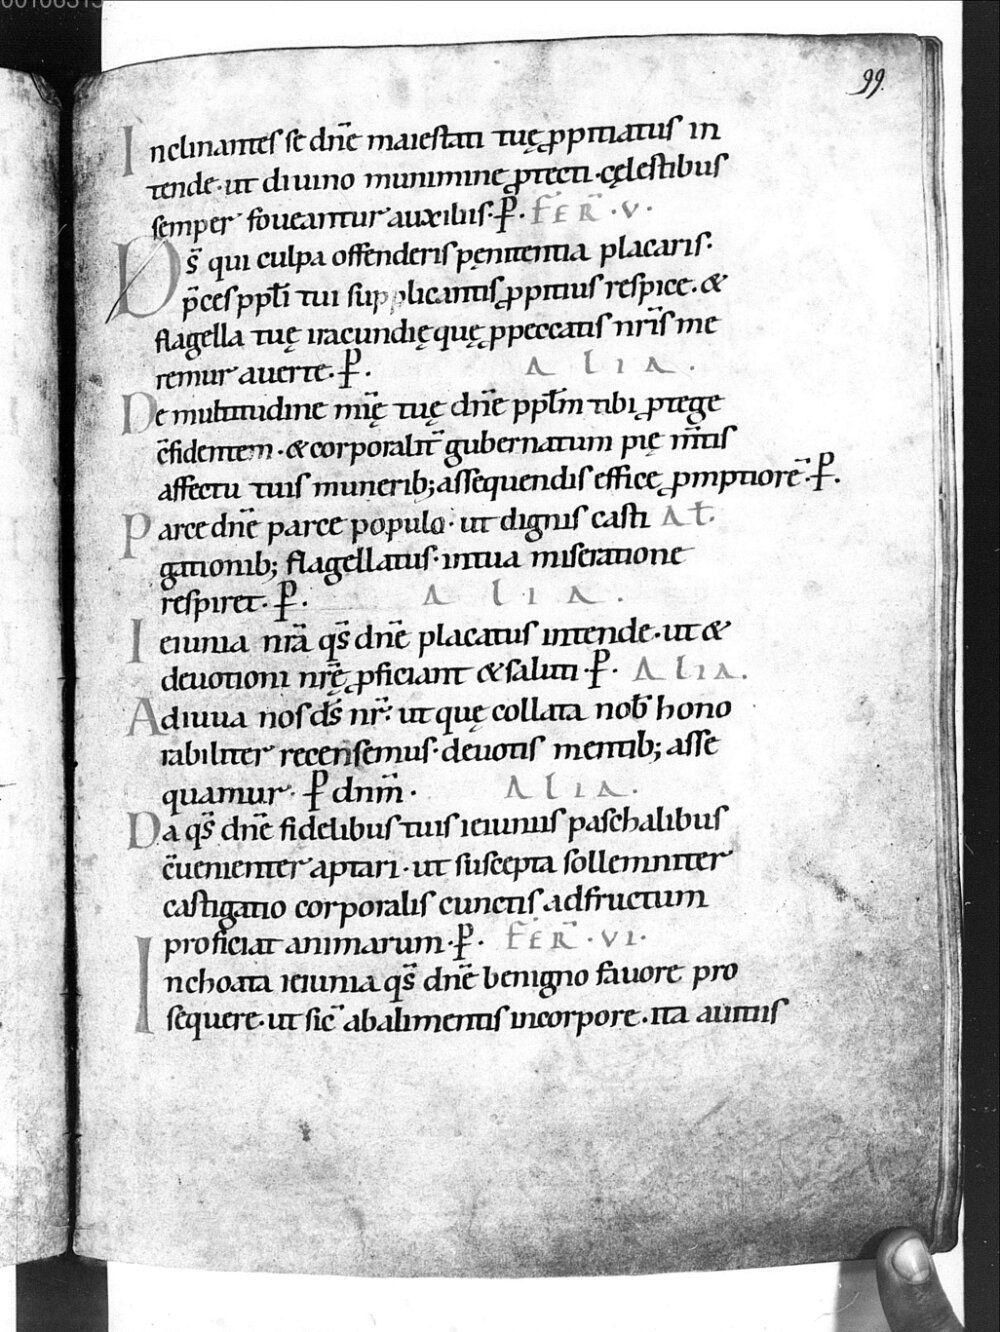 99.
Inclinantes se dn̄e maiestati tuę ꝓpitiatus in
tende · ut diuino munimine ꝓtecti · cęlestibus
semper foueantur auxiliis · P̄ · FER̄ · V ·
Ds̄ qui culpa offenderis pęnitentia placaris ·
p̄ces ppl̄i tui supplicantis ꝓpitius respice · &
flagella tuę iracundię quę ꝓ peccatis nr̄is me
remur auerte · P̄ · ALIA ·
De multitudine mīę tuę dn̄e ppl̄m tibi ꝓtege
c̄fidentem · & corporalit̄ gubernatum pię m̄tis
affectu tuis munerib; assequendis effice ꝓmptiorē · P̄ ·
Parce dn̄e parce populo · ut dignis casti At̄ ·
gationib; flagellatus · in tua miseratione
respiret · P̄ · ALIA ·
Ieiunia nr̄a qs̄ dn̄e placatus intende · ut &
deuotioni nr̄ę ꝓficiant & saluti · P̄ · ALIA ·
Adiuua nos ds̄ nr̄ · ut quę collata nob̄ hono
rabiliter recensemus · deuotis mentib; asse
quamur · P̄ dnm̄ · ALIA ·
Da qs̄ dn̄e fidelibus tuis ieiuniis paschalibus
c̄uenienter aptari · ut suscepta sollemniter
castigatio corporalis cunctis ad fructum
proficiat animarum · P̄ · FER̄ · VI ·
Inchoata ieiunia qs̄ dn̄e benigno fauore pro
sequere · ut sic̄ ab alimentis in corpore · ita a uitiis